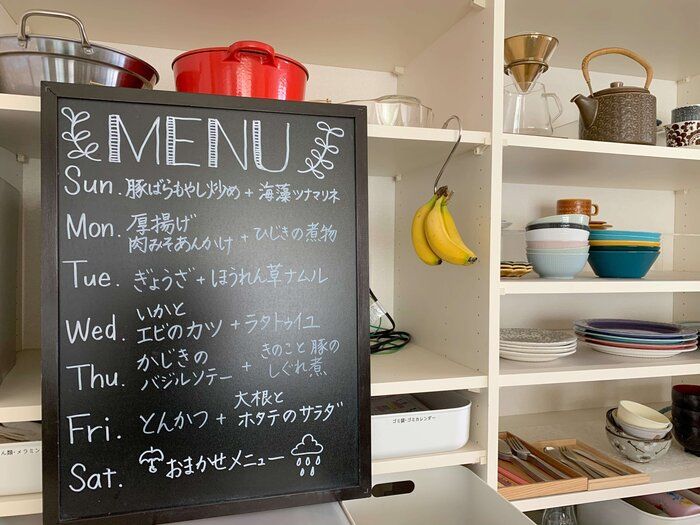 MENU
Sun. 豚ばらもやし炒め + 海藻ツナマリネ
Mon. 厚揚げ
肉みそあんかけ + ひじきの煮物
Tue. ぎょうざ + ほうれん草ナムル
Wed. いかと
エビのカツ + ラタトゥイユ
Thu. かじきの
バジルソテー + きのこと豚の
しぐれ煮
Fri. とんかつ + 大根と
ホタテのサラダ
Sat. おまかせメニュー
ゴミ袋・ゴミカレンダー
ん類・メラミン